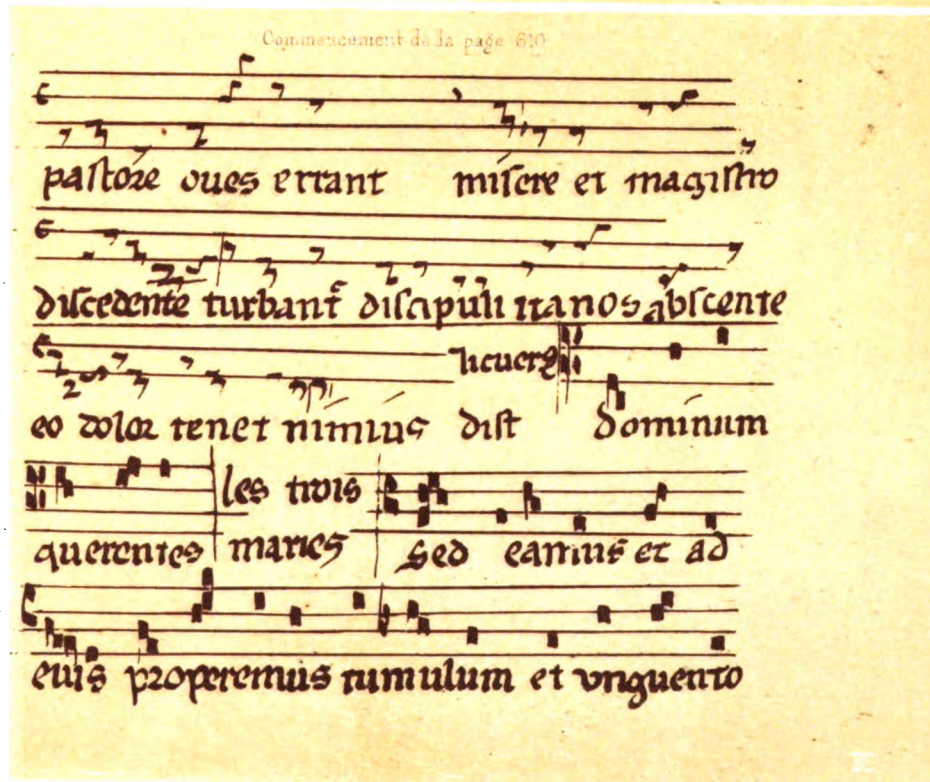 Commencement de la page 610
pastore oues errant misere et magistro
discedente turbant discipuli ita nos abscente
eo dolor tenet nimius dist dominum
querentes les trois maries sed eamus et ad
euis properemus tumulum et vnguento